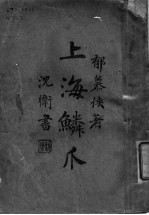 郁慕俠著
上海鱗爪
沈衛書